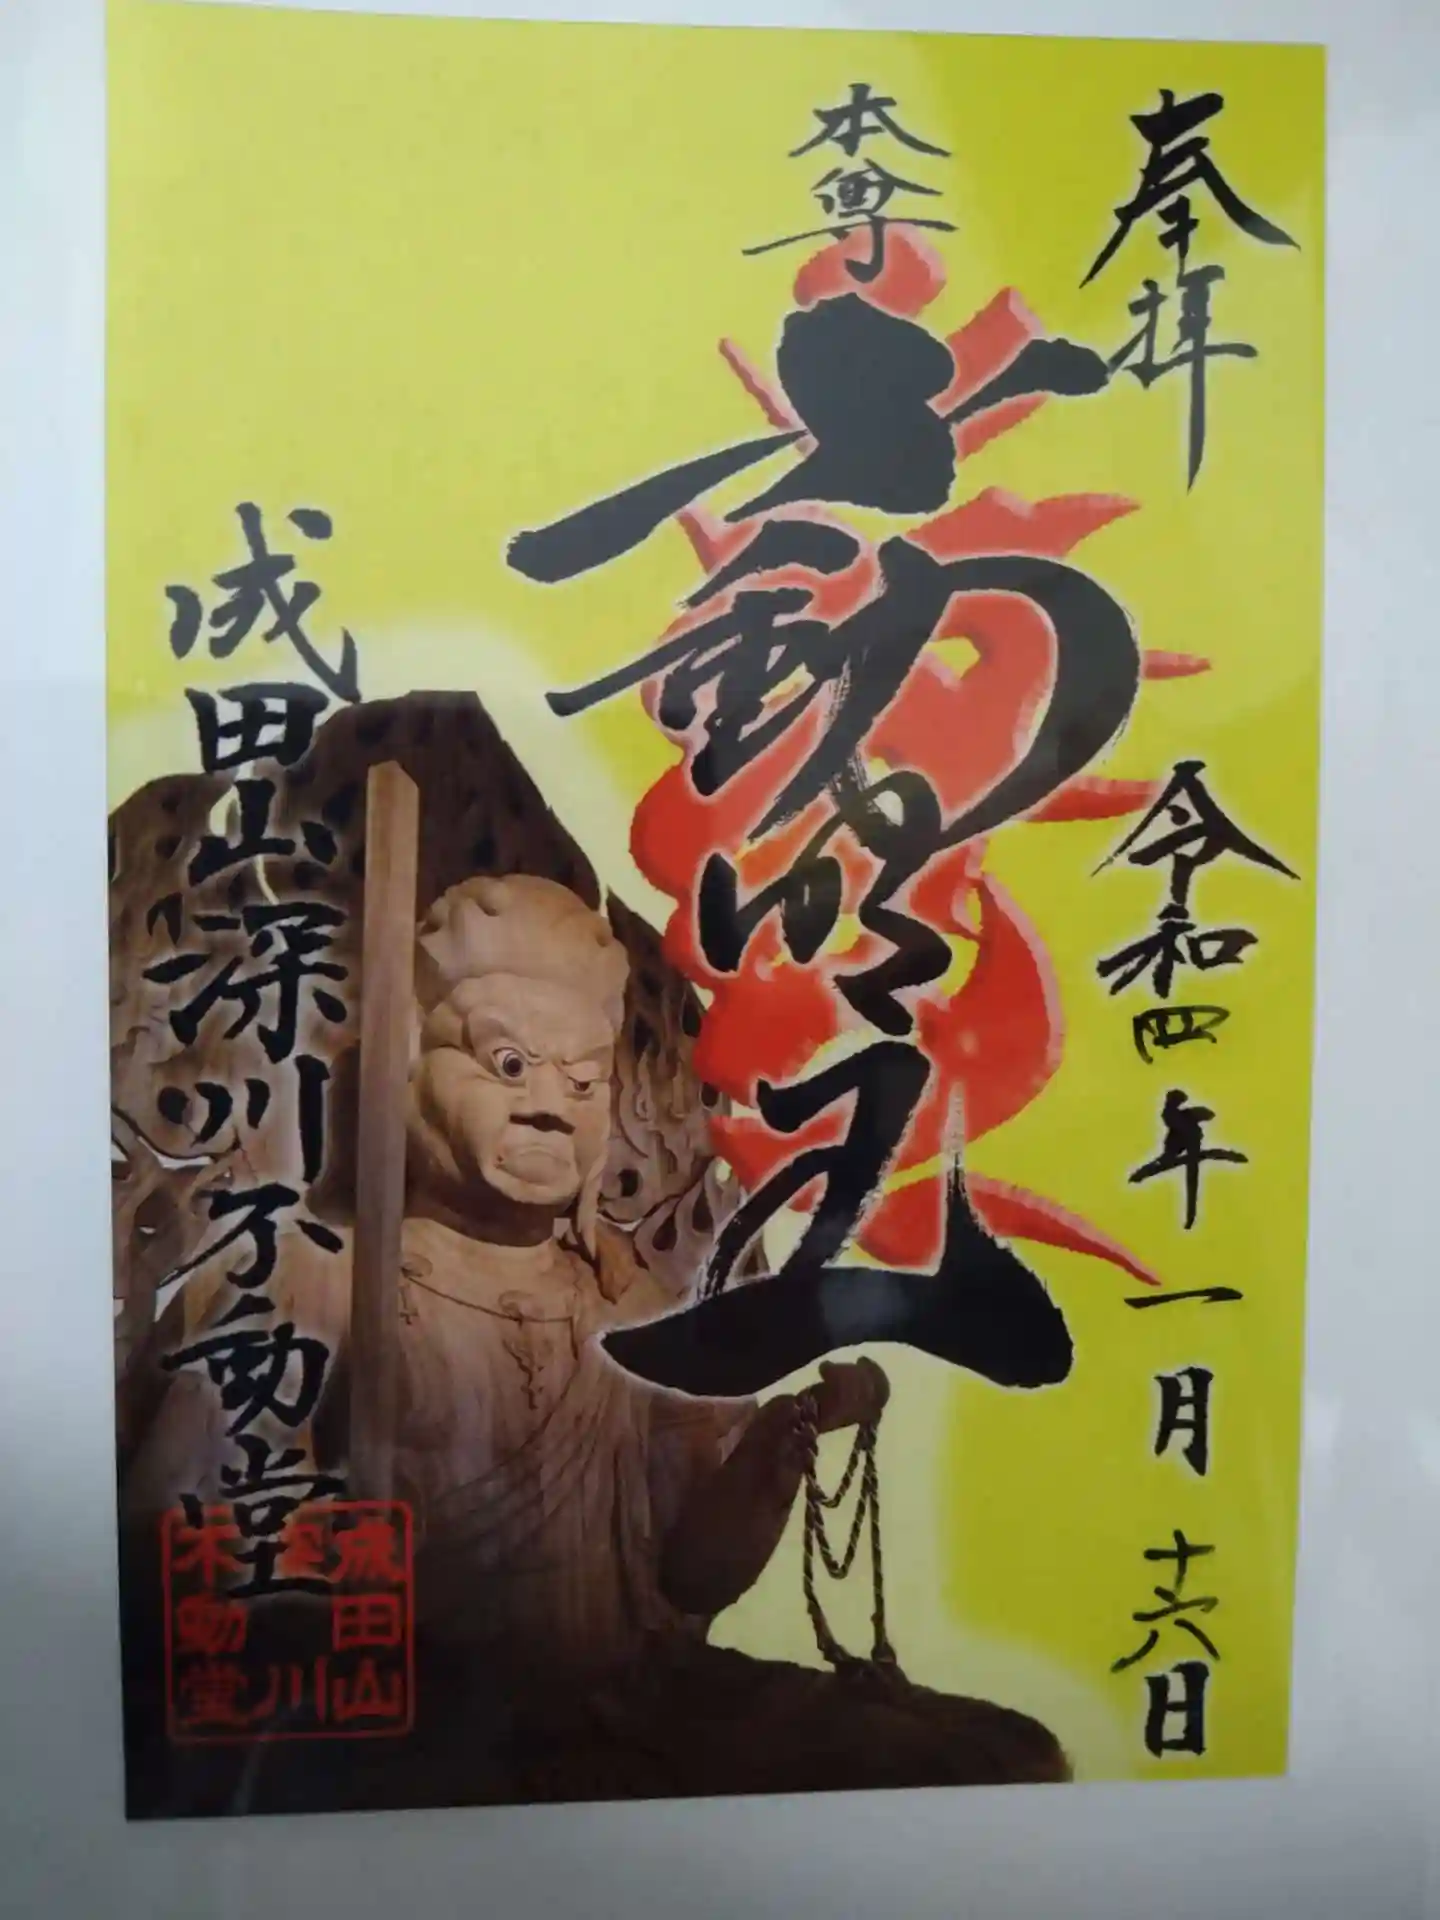 奉拝
令和四年一月十六日
本尊
不動明王
成田山深川不動堂
成田山
深川
不動堂